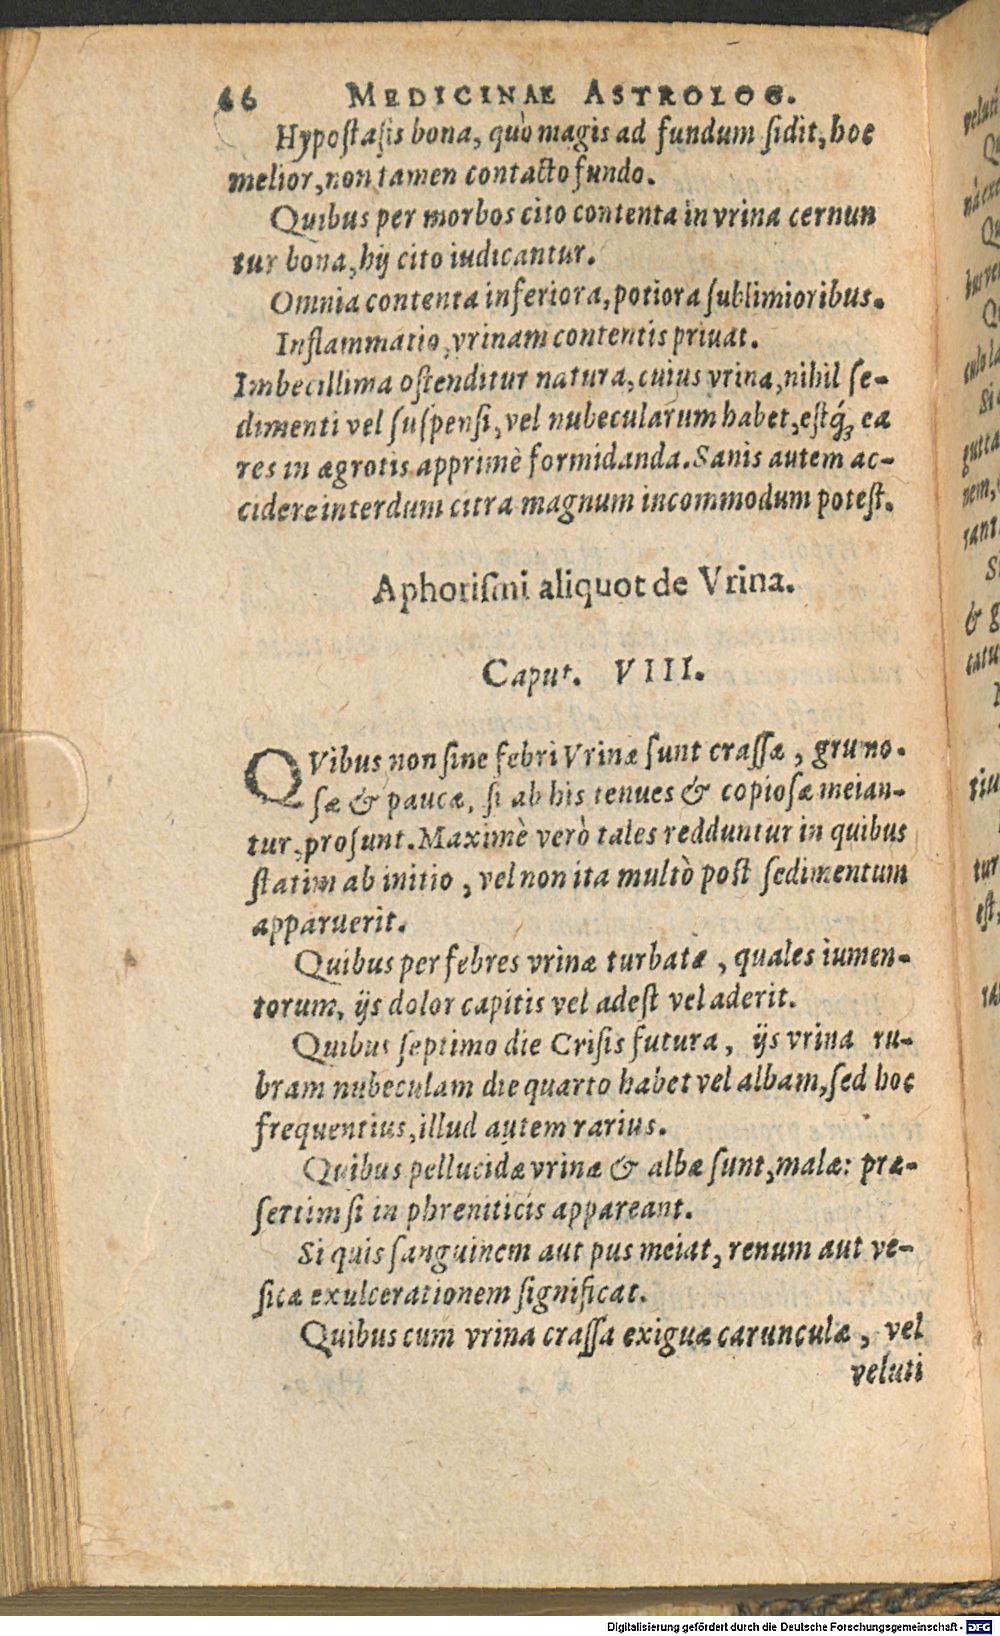 66 MEDICINAE ASTROLOG.
Hypostasis bona, quò magis ad fundum sidit, hoc
melior, non tamen contacto fundo.
Quibus per morbos cito contenta in vrina cernun
tur bona, hij cito iudicantur.
Omnia contenta inferiora, potiora sublimioribus.
Inflammatio, vrinam contentis priuat.
Imbecillima ostenditur natura, cuius vrina, nihil se-
dimenti vel suspensi, vel nubecularum habet, estq́; ea
res in ægrotis apprimè formidanda. Sanis autem ac-
cidere interdum citra magnum incommodum potest.
Aphorismi aliquot de Vrina.
Caput. VIII.
QVibus non sine febri Vrinæ sunt crassæ, grumo-
sæ & paucæ, si ab his tenues & copiosæ meian-
tur, prosunt. Maximè verò tales redduntur in quibus
statim ab initio, vel non ita multò post sedimentum
apparuerit.
Quibus per febres vrinæ turbatæ, quales iumen-
torum, ijs dolor capitis vel adest vel aderit.
Quibus septimo die Crisis futura, ijs vrina ru-
bram nubeculam die quarto habet vel albam, sed hoc
frequentius, illud autem rarius.
Quibus pellucidæ vrinæ & albæ sunt, malæ: præ-
sertim si in phreniticis appareant.
Si quis sanguinem aut pus meiat, renum aut ve-
sicæ exulcerationem significat.
Quibus cum vrina crassa exiguæ carunculæ, vel
veluti
Digitalisierung gefördert durch die Deutsche Forschungsgemeinschaft - DFG